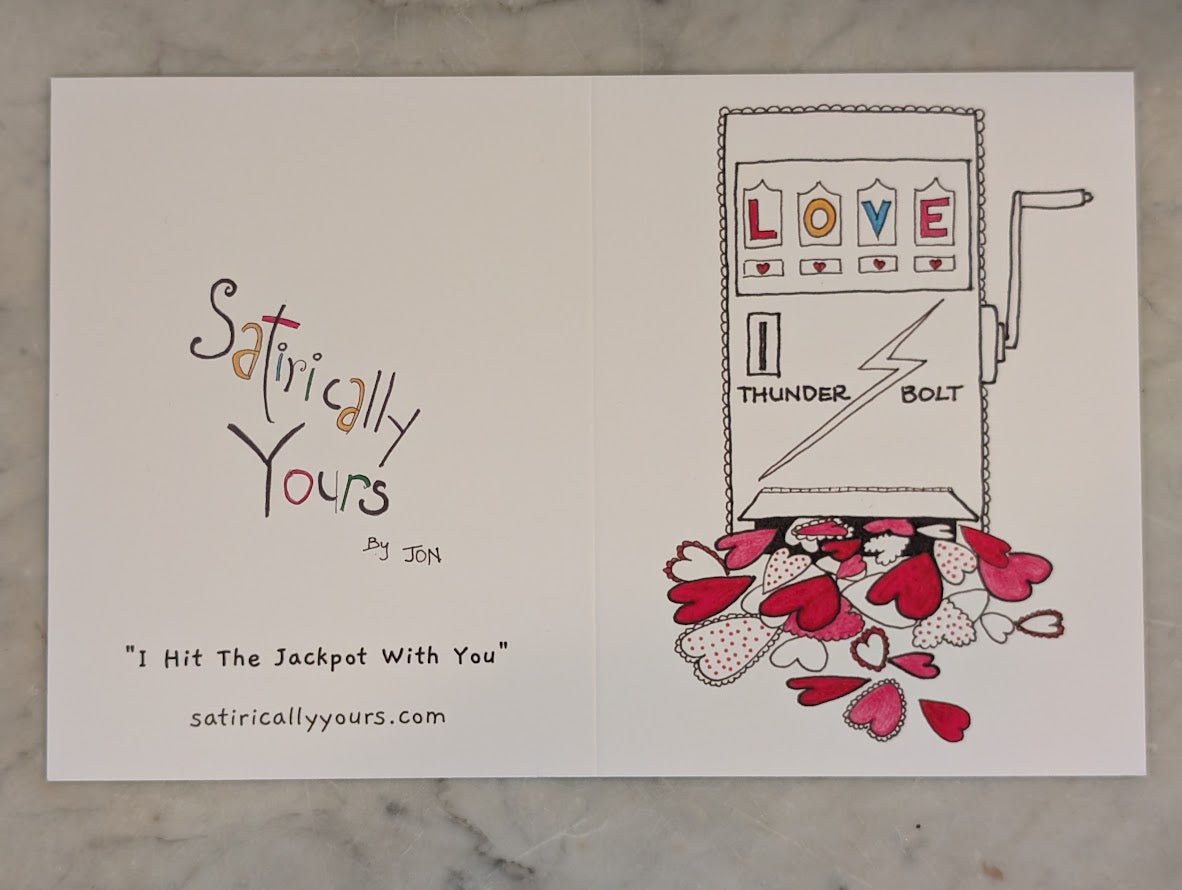 Satirically
Yours
By JON
"I Hit The Jackpot With You"
satiricallyyours.com
LOVE
THUNDER BOLT